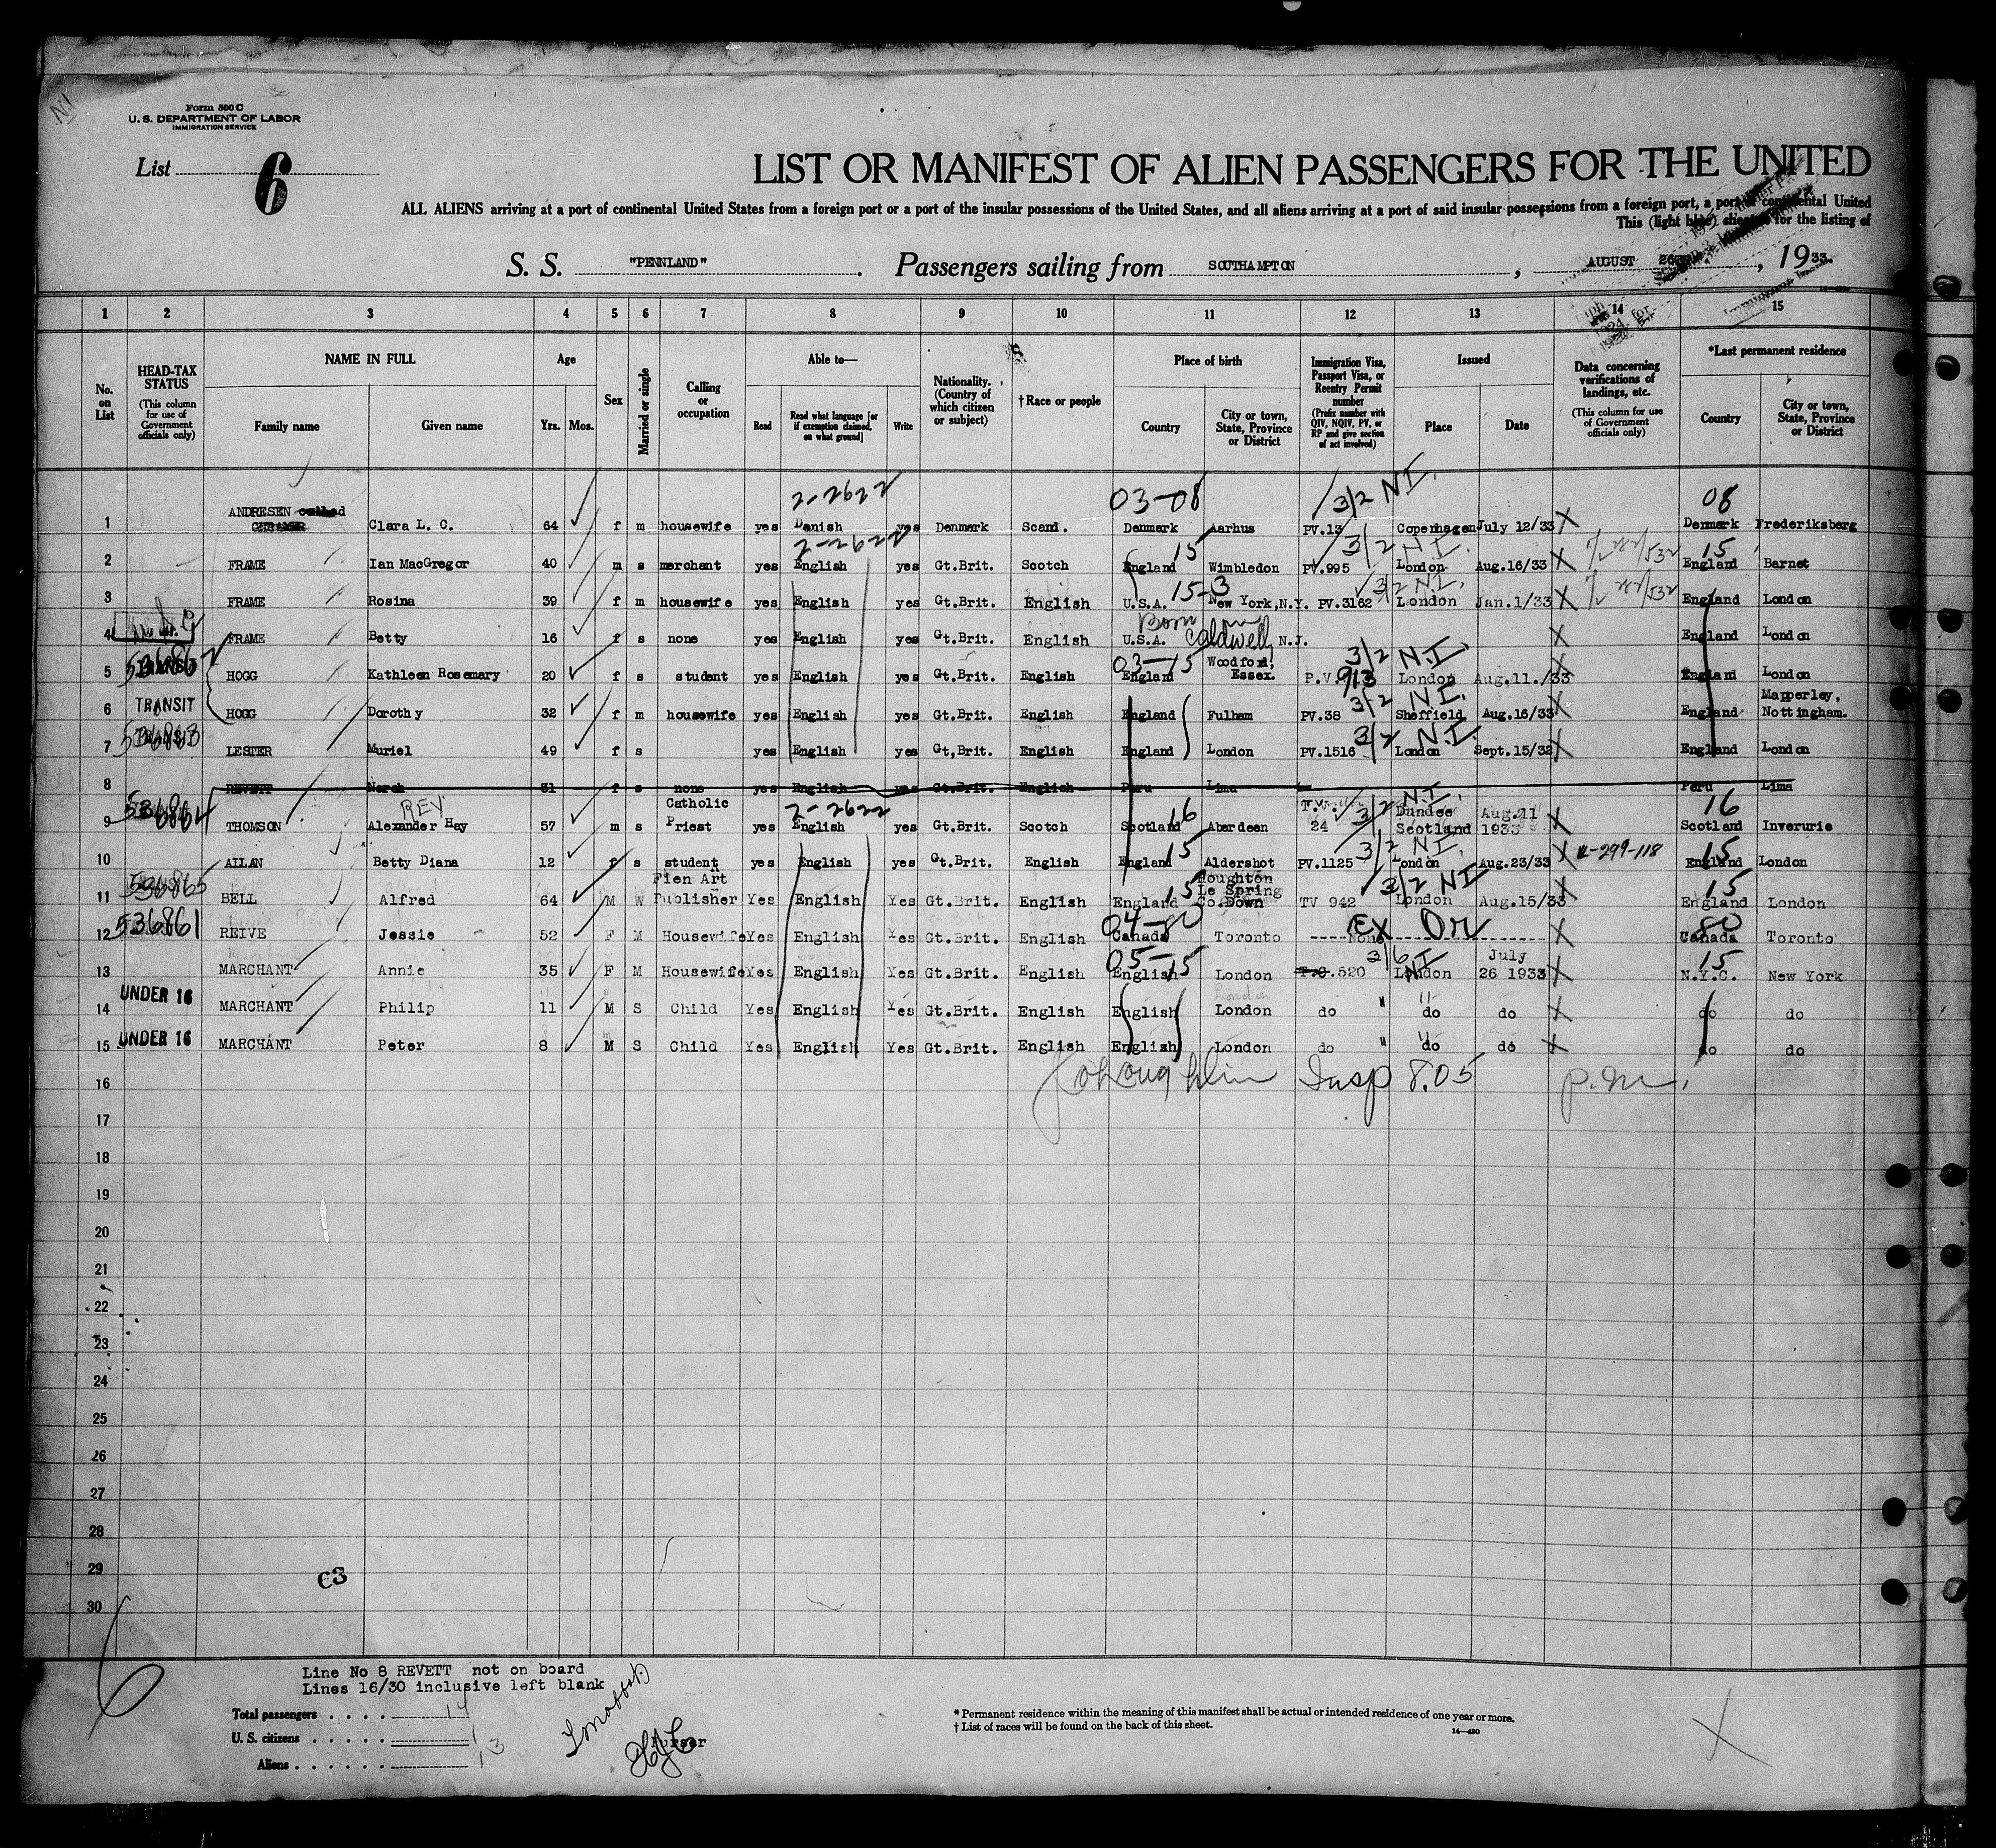 N.I
Form 500 C
U. S. DEPARTMENT OF LABOR
IMMIGRATION SERVICE
List 6
LIST OR MANIFEST OF ALIEN PASSENGERS FOR THE UNITED
ALL ALIENS arriving at a port of continental United States from a foreign port or a port of the insular possessions of the United States, and all aliens arriving at a port of said insular possessions from a foreign port, a port of continental United
This (light blue) sheet is for the listing of
S. S. "PENNLAND". Passengers sailing from SOUTHAMPTON, AUGUST 26, 1933.
1 2 3 4 5 6 7 8 9 10 11 12 13 14 15
No. on List
HEAD-TAX STATUS (This column for use of Government officials only)
NAME IN FULL Family name Given name
Age Yrs. Mos.
Sex
Married or single
Calling or occupation
Able to— Read Read what language [or if exemption claimed, on what ground] Write
Nationality. (Country of which citizen or subject)
†Race or people
Place of birth Country City or town, State, Province or District
Immigration Visa, Passport Visa, or Reentry Permit number (Prefix number with QIV, NQIV, PV, or RP and give section of act involved)
Issued Place Date
Data concerning verifications of landings, etc. (This column for use of Government officials only)
*Last permanent residence Country City or town, State, Province or District
2-2622 03-08 3/2 N.I. 08
1 ANDRESEN called Clara L. C. 64 f m housewife yes Danish yes Denmark Scand. Denmark Aarhus PV.13 Copenhagen July 12/33 X Denmark Frederiksberg
2-2622 15 3/2 N.I. 15
2 FRAME Ian MacGregor 40 m s merchant yes English yes Gt.Brit. Scotch England Wimbledon PV.995 London Aug.16/33 X England Barnet
15-3 3/2 N.I.
3 FRAME Rosina 39 f m housewife yes English yes Gt.Brit. English U.S.A. New York,N.Y. PV.3162 London Jan.1/33 X England London
Born in
4 FRAME Betty 16 f s none yes English yes Gt.Brit. English U.S.A. Caldwell N.J. X England London
03-15 3/2 N.I.
5 TRANSIT HOGG Kathleen Rosemary 20 f s student yes English yes Gt.Brit. English England Woodford, Essex. P.V.913 London Aug.11./33 X England London
3/2 N.I.
6 TRANSIT HOGG Dorothy 32 f m housewife yes English yes Gt.Brit. English England Fulham PV.38 Sheffield Aug.16/33 X England Mapperley, Nottingham.
3/2 N.I.
7 TRANSIT 536863 LESTER Muriel 49 f s yes English yes Gt,Brit. English England London PV.1516 London Sept.15/32 X England London
8 REVETT Norah 31 f s none yes English yes Gt.Brit. English Peru Lima Peru Lima
REV 2-2622 16 3/2 N.I. 16
9 536864 THOMSON Alexander Hay 57 m s Catholic Priest yes English yes Gt.Brit. Scotch Scotland Aberdeen 24 Dundee Scotland Aug.11 1933 X Scotland Inverurie
15 3/2 N.I. 15
10 ALLAN Betty Diana 12 f s student yes English yes Gt.Brit. English England Aldershot PV.1125 London Aug.23/33 X 299-118 England London
15 3/2 NI 15
11 536865 BELL Alfred 64 M W Fien Art Publisher Yes English Yes Gt.Brit. English England Houghton Le Spring Co.Down TV 942 London Aug.15/33 X England London
04-80 EX 80
12 536861 REIVE Jessie 52 F M Housewife Yes English Yes Gt.Brit. English Canada Toronto ----None---- X Canada Toronto
05-15 NI 15
13 MARCHANT Annie 35 F M Housewife Yes English Yes Gt.Brit. English English London .520 London July 26 1933 X N.Y.C. New York
14 UNDER 16 MARCHANT Philip 11 M S Child Yes English Yes Gt.Brit. English English London do " do do X do do
15 UNDER 16 MARCHANT Peter 8 M S Child Yes English Yes Gt.Brit. English English London do " do do X do do
16 Insp 8.05 P.M.
17
18
19
20
21
22
23
24
25
26
27
28
29
63
30
6
Line No 8 REVETT not on board
Lines 16/30 inclusive left blank
Total passengers . . . . 14
U. S. citizens . . . . . 1
Aliens . . . . . . 13
Purser
* Permanent residence within the meaning of this manifest shall be actual or intended residence of one year or more.
† List of races will be found on the back of this sheet.
14—480
X